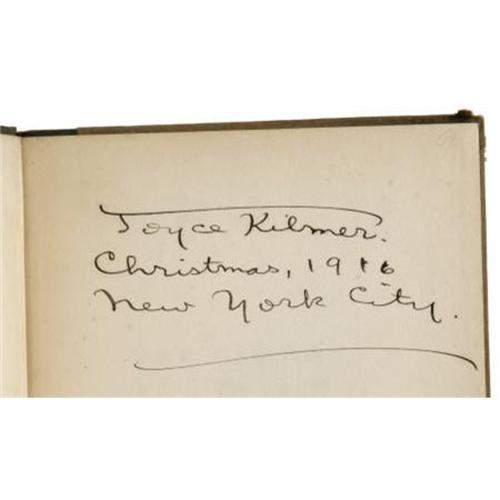 Joyce Kilmer.
Christmas, 1916
New York City.